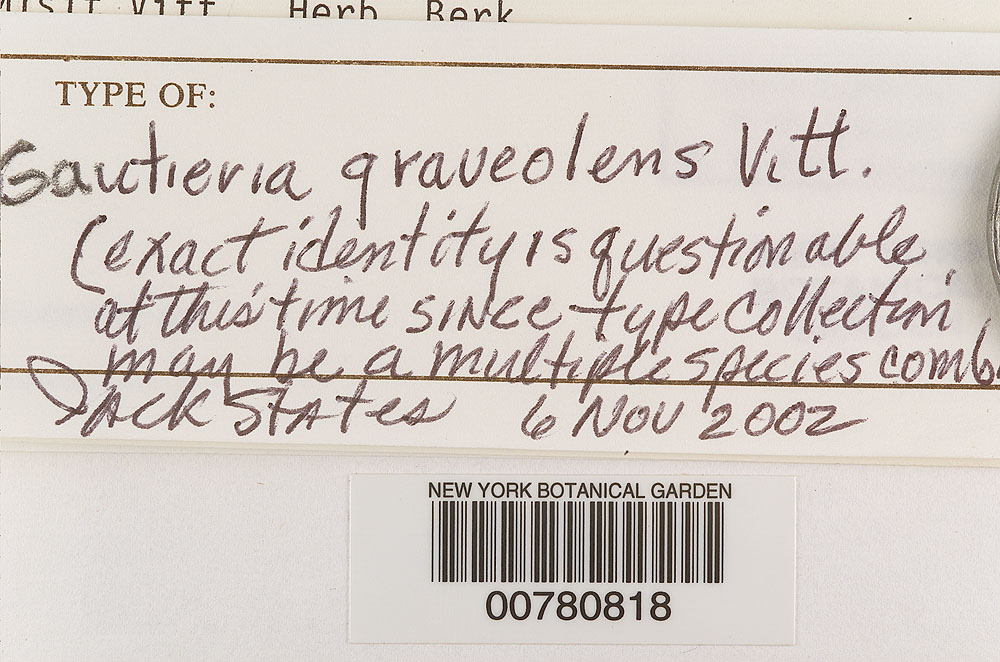 Misit Vitt. Herb. Berk.
TYPE OF:
Gautieria graveolens Vitt.
(exact identity is questionable,
at this time since type collection
may be a multiple species comb
Jack States 6 Nov 2002
NEW YORK BOTANICAL GARDEN
00780818